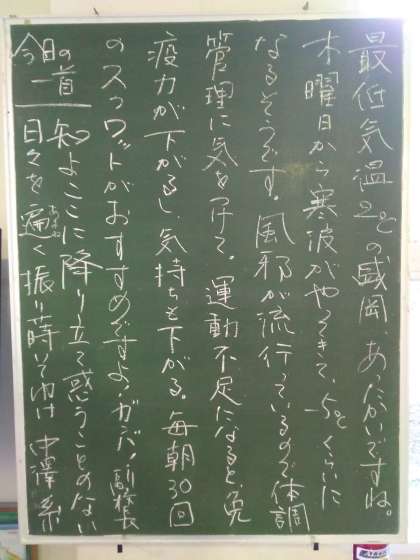 最低気温2℃の盛岡、あったかいですね。
木曜日から寒波がやってきて、-5℃くらいに
なるそうです。風邪が流行っているので体調
管理に気をつけて。運動不足になると、免
疫力が下がるし、気持ちも下がる。毎朝30回
のスクワットがおすすめですよ。ガンバ！副校長
今日の一首
知よここに降り立て惑うことのない
日々を遍く振り蒔いてゆけ 中澤系
あまね